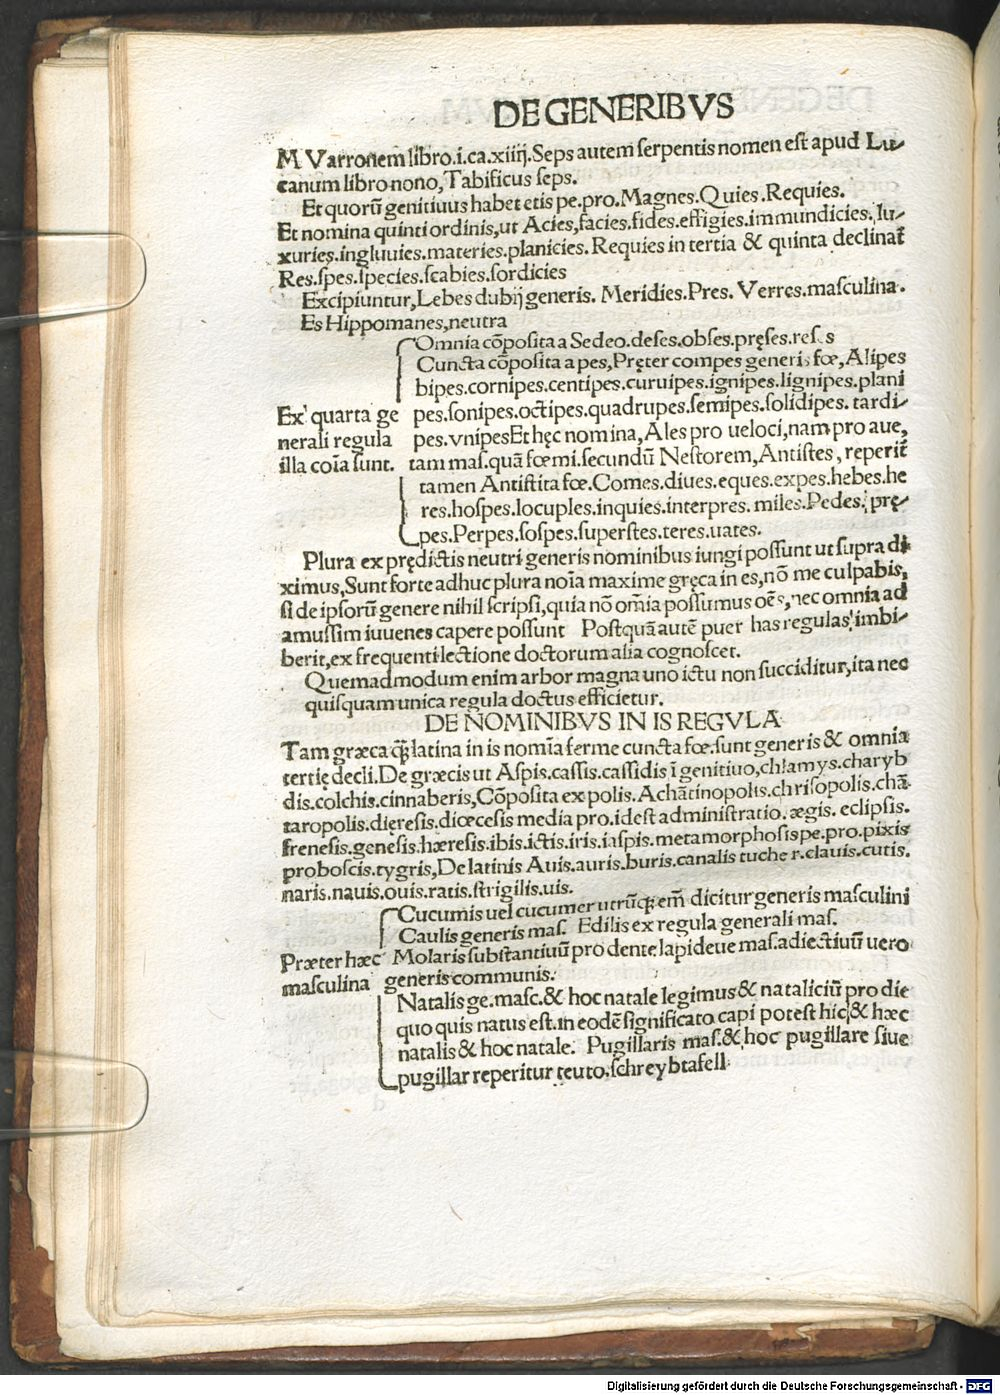 DE GENERIBVS
M. Varronem libro.i.ca.xiiij.Seps autem ſerpentis nomen eſt apud Lu-
canum libro nono, Tabificus ſeps.
Et quorũ genitiuus habet etis pe.pro. Magnes. Quies. Requies.
Et nomina quinti ordinis, ut Acies, facies. fides. effigies. immundicies. lu-
xuries. ingluuies. materies. planicies. Requies in tertia & quinta declinat᷑
Res. ſpes. ſpecies. ſcabies. ſordicies
Excipiuntur, Lebes dubij generis. Meridies. Pres. Verres. maſculina.
Es Hippomanes, neutra
Omnia cõpoſita a Sedeo. deſes. obſes. pręſes. reſes
Cuncta cõpoſita a pes, Pręter compes generis fœ, Alipes
bipes. cornipes. centipes. curuipes. ignipes. lignipes. plani
Ex quarta ge
nerali regula
illa coĩa ſunt.
pes. ſonipes. octipes. quadrupes. ſemipes. ſolidipes. tardi-
pes. vnipes Et hęc nomina, Ales pro ueloci, nam pro aue,
tam maſ. quã fœmi. ſecundũ Neſtorem, Antiſtes, reperit᷑
tamen Antiſtita fœ. Comes. diues. eques. expes. hebes. he
res. hoſpes. locuples. inquies. interpres. miles. Pedes. prę-
pes. Perpes. ſoſpes. ſuperſtes. teres. uates.
Plura ex prędictis neutri generis nominibus iungi poſſunt ut ſupra di
ximus, Sunt forte adhuc plura noĩa maxime gręca in es, nõ me culpabis,
ſi de ipſorũ genere nihil ſcripſi, quia nõ om̃ia poſſumus oẽs, nec omnia ad
amuſſim iuuenes capere poſſunt Poſtquã autẽ puer has regulas imbi-
berit, ex frequenti lectione doctorum alia cognoſcet.
Quemadmodum enim arbor magna uno ictu non ſucciditur, ita nec
quiſquam unica regula doctus efficietur.
DE NOMINIBVS IN IS REGVLA
Tam græca q̃ꝫ latina in is nomĩa ferme cuncta fœ. ſunt generis & omnia
tertię decli. De græcis ut Aſpis. caſſis. caſſidis ĩ genitiuo, chlamys. charyb
dis. colchis. cinnaberis, Cõpoſita ex polis. Achãtinopolis. chriſopolis. chã
taropolis. dięreſis. diœceſis media pro. ideſt adminiſtratio. ægis. eclipſis.
freneſis. geneſis. hæreſis. ibis. ictis. iris. iaſpis. metamorphoſis pe. pro. pixis
proboſcis. tygris, De latinis Auis. auris. buris. canalis tucher. clauis. cutis.
naris. nauis. ouis. ratis. ſtrigilis. uis.
Cucumis uel cucumer utrũqꝫ em̃ dicitur generis maſculini
Caulis generis maſ. Edilis ex regula generali maſ.
Præter hæc
maſculina
Molaris ſubſtantiuũ pro dente lapideue maſ. adiectiuũ uero
generis communis.
Natalis ge. maſc. & hoc natale legimus & nataliciũ pro die
quo quis natus eſt. in eodẽ ſignificato capi poteſt hic & hæc
natalis & hoc natale. Pugillaris maſ. & hoc pugillare ſiue
pugillar reperitur teuto, ſchreybtafell
Digitalisierung gefördert durch die Deutsche Forschungsgemeinschaft - DFG